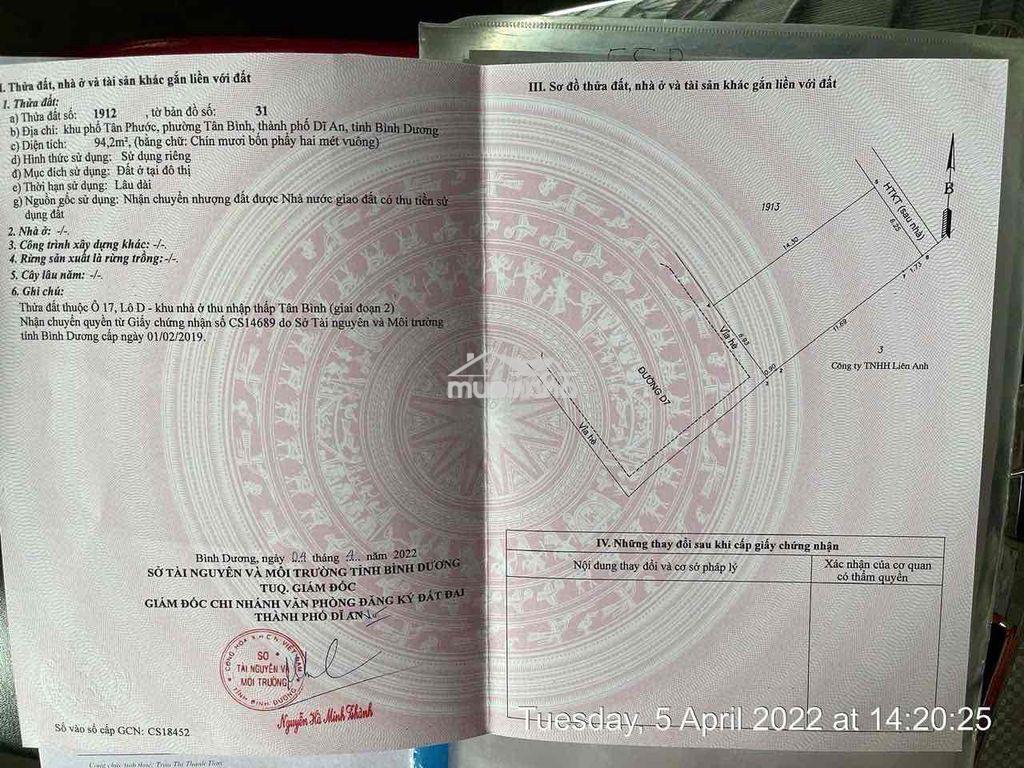 I. Thửa đất, nhà ở và tài sản khác gắn liền với đất
1. Thửa đất:
a) Thửa đất số: 1912 , tờ bản đồ số: 31
b) Địa chỉ: khu phố Tân Phước, phường Tân Bình, thành phố Dĩ An, tỉnh Bình Dương
c) Diện tích: 94,2m², (bằng chữ: Chín mươi bốn phẩy hai mét vuông)
d) Hình thức sử dụng: Sử dụng riêng
đ) Mục đích sử dụng: Đất ở tại đô thị
e) Thời hạn sử dụng: Lâu dài
g) Nguồn gốc sử dụng: Nhận chuyển nhượng đất được Nhà nước giao đất có thu tiền sử
dụng đất
2. Nhà ở: -/-.
3. Công trình xây dựng khác: -/-.
4. Rừng sản xuất là rừng trồng:-/-.
5. Cây lâu năm: -/-.
6. Ghi chú:
Thửa đất thuộc Ô 17, Lô D - khu nhà ở thu nhập thấp Tân Bình (giai đoạn 2)
Nhận chuyển quyền từ Giấy chứng nhận số CS14689 do Sở Tài nguyên và Môi trường
tỉnh Bình Dương cấp ngày 01/02/2019.
Bình Dương, ngày 04 tháng năm 2022
SỞ TÀI NGUYÊN VÀ MÔI TRƯỜNG TỈNH BÌNH DƯƠNG
TUQ. GIÁM ĐỐC
GIÁM ĐỐC CHI NHÁNH VĂN PHÒNG ĐĂNG KÝ ĐẤT ĐAI
THÀNH PHỐ DĨ AN
CỘNG HÒA X.H.C.N VIỆT NAM
SỞ
TÀI NGUYÊN VÀ
MÔI TRƯỜNG
TỈNH BÌNH DƯƠNG
Nguyễn Hà Minh Thành
Số vào sổ cấp GCN: CS18452
III. Sơ đồ thửa đất, nhà ở và tài sản khác gắn liền với đất
B
HTKT (sau nhà)
6.25
1913
14.30
1.73
11.69
6.93
Vỉa hè
0.90
3
Công ty TNHH Liên Anh
ĐƯỜNG D7
Vỉa hè
IV. Những thay đổi sau khi cấp giấy chứng nhận
Nội dung thay đổi và cơ sở pháp lý
Xác nhận của cơ quan
có thẩm quyền
Tuesday, 5 April 2022 at 14:20:25